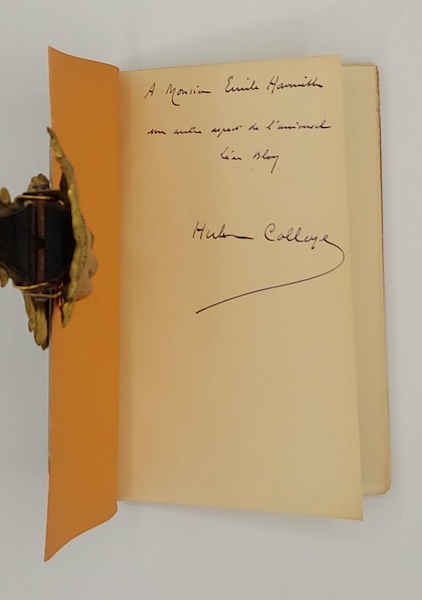 A Monsieur Emile
un autre aspect de l'universel
Léon Bloy
Hubert Colleye